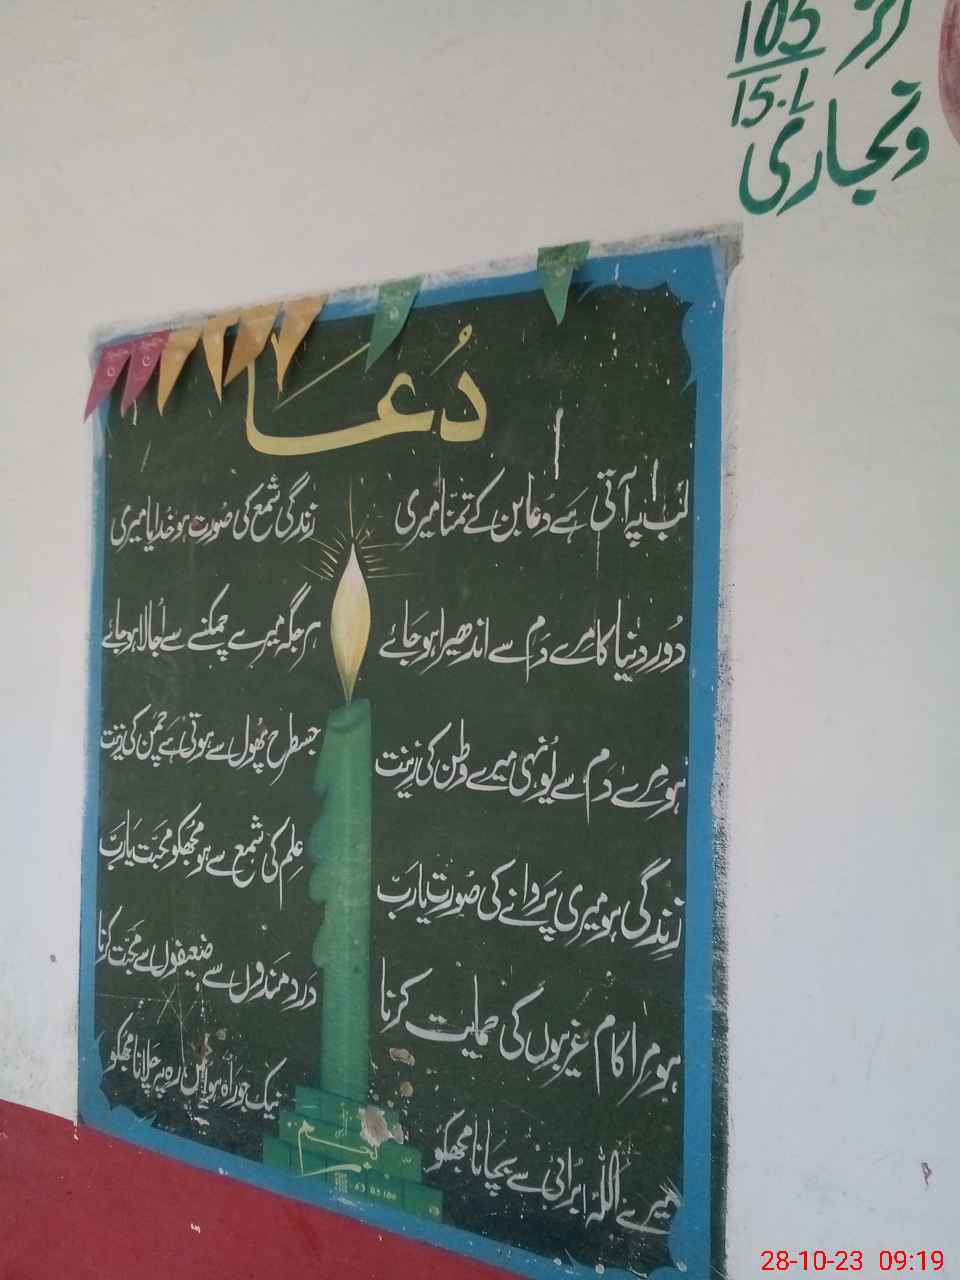 103
15.L
وتجاری
دُعا
لب پہ آتی ہے دُعا بن کے تمنّا میری
زندگی شمع کی صُورت ہو خُدایا میری
دُور دُنیا کا مرے دَم سے اندھیرا ہو جائے
ہر جگہ میرے چمکنے سے اُجالا ہو جائے
ہو مِرے دم سے یُونہی میرے وطن کی زینت
جسطرح پھُول سے ہوتی ہے چمن کی زینت
زِندگی ہو میری پَروانے کی صُورت یارَبّ
عِلم کی شمع سے ہو مجُھکو محبّت یارَبّ
ہو مرا کام غریبوں کی حمایت کرنا
دردمندوں سے ضعیفوں سے محبّت کرنا
میرے اللہ بُرائی سے بچانا مجھکو
نیک جو راہ ہو اُس رہ پہ چلانا مجھکو
28-10-23 09:19